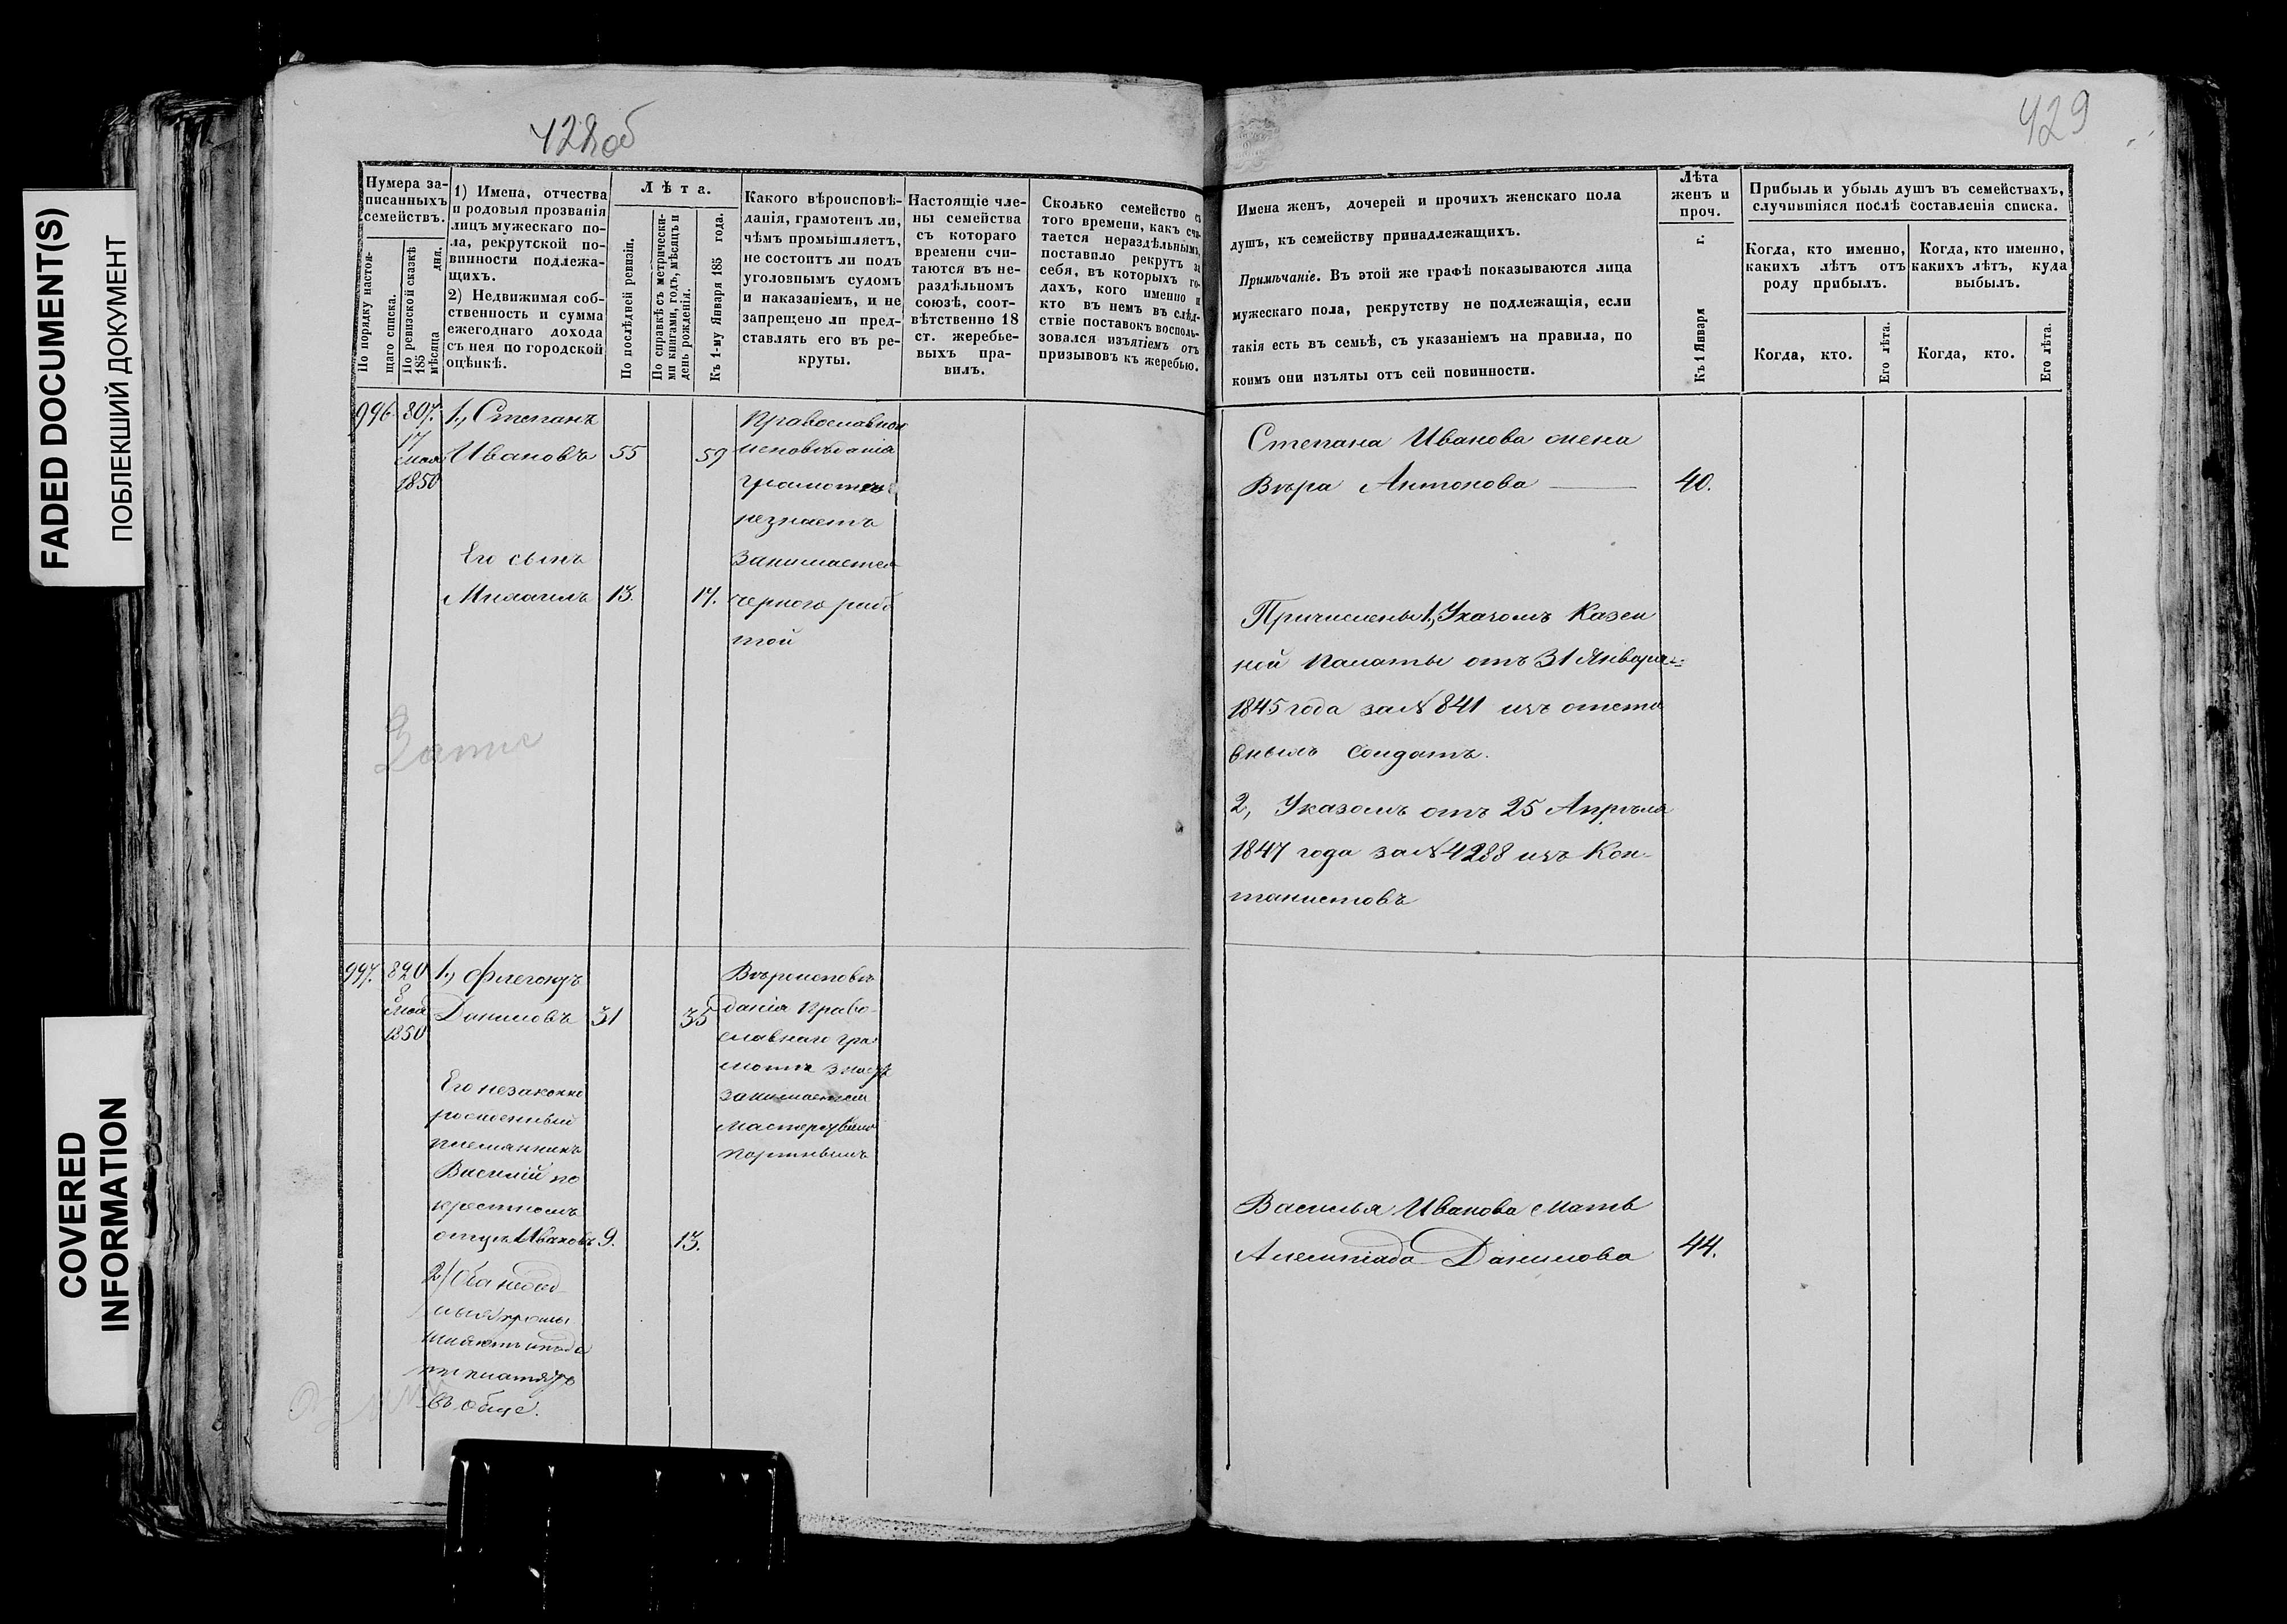 FADED DOCUMENT(S)
ПОБЛЕКШИЙ ДОКУМЕНТ
COVERED
INFORMATION
428об
Нумера за-
писанныхъ
семействъ.
По порядку настоя-
щаго списка.
По ревизской сказкѣ
185 мѣсяца дня.
1) Имена, отчества
и родовыя прозванія
лицъ мужескаго по-
ла, рекрутской по-
винности подлежа-
щихъ.
2) Недвижимая соб-
ственность и сумма
ежегоднаго дохода
съ нея по городской
оцѣнкѣ.
Лѣта.
По послѣдней ревизіи.
По справкѣ съ метрически-
ми книгами, годъ, мѣсяцъ и
день рожденія.
Къ 1-му Января 185 года.
Какого вѣроисповѣ-
данія, грамотенъ ли,
чѣмъ промышляетъ,
не состоитъ ли подъ
уголовнымъ судомъ
и наказаніемъ, и не
запрещено ли пред-
ставлять его въ ре-
круты.
Настоящіе чле-
ны семейства
съ котораго
времени счи-
таются въ не-
раздѣльномъ
союзѣ, соот-
вѣтственно 18
ст. жеребье-
выхъ пра-
вилъ.
Сколько семейство съ
того времени, какъ счи-
тается нераздѣльнымъ,
поставило рекрутъ за
себя, въ которыхъ го-
дахъ, кого именно и
кто въ немъ въ слѣд-
ствіе поставокъ восполь-
зовался изъятіемъ отъ
призывовъ къ жеребью.
996. 807. 1, Степанъ
17
мая Ивановъ 55 59
1850
Православнаго
исповѣданія
грамотѣ
незнаетъ
занимается
черного рабо
той
Его сынъ
Михаилъ 13. 17.
997. 820 1, Флегонтъ
8
мая Даниловъ 31 35
1850
Вѣроисповѣ
данія Право-
славнаго гра
мотѣ знаетъ
занимается
мастерствомъ
портнымъ
Его незаконно
рожденный
племянникъ
Василій по
крестному
отцу Ивановъ 9. 13.
2/ Оба
въ обще.
429
Имена женъ, дочерей и прочихъ женскаго пола
душъ, къ семейству принадлежащихъ.
Примѣчаніе. Въ этой же графѣ показываются лица
мужескаго пола, рекрутству не подлежащія, если
такія есть въ семьѣ, съ указаніемъ на правила, по
коимъ они изъяты отъ сей повинности.
Лѣта
женъ и
проч.
Къ 1 Января г.
Прибыль и убыль душъ въ семействахъ,
случившіяся послѣ составленія списка.
Когда, кто именно,
какихъ лѣтъ отъ
роду прибылъ.
Когда, кто именно,
какихъ лѣтъ, куда
выбылъ.
Когда, кто.
Его лѣта.
Когда, кто.
Его лѣта.
Степана Иванова жена
Вѣра Антонова 40.
Причислены 1, Указомъ Казен
ной Палаты отъ 31 Января
1845 года за № 841 изъ отста
вныхъ солдатъ.
2, Указомъ отъ 25 Апрѣля
1847 года за № 4288 изъ Кан-
тонистовъ
Василья Иванова мать
Алемпіада Данилова 44.